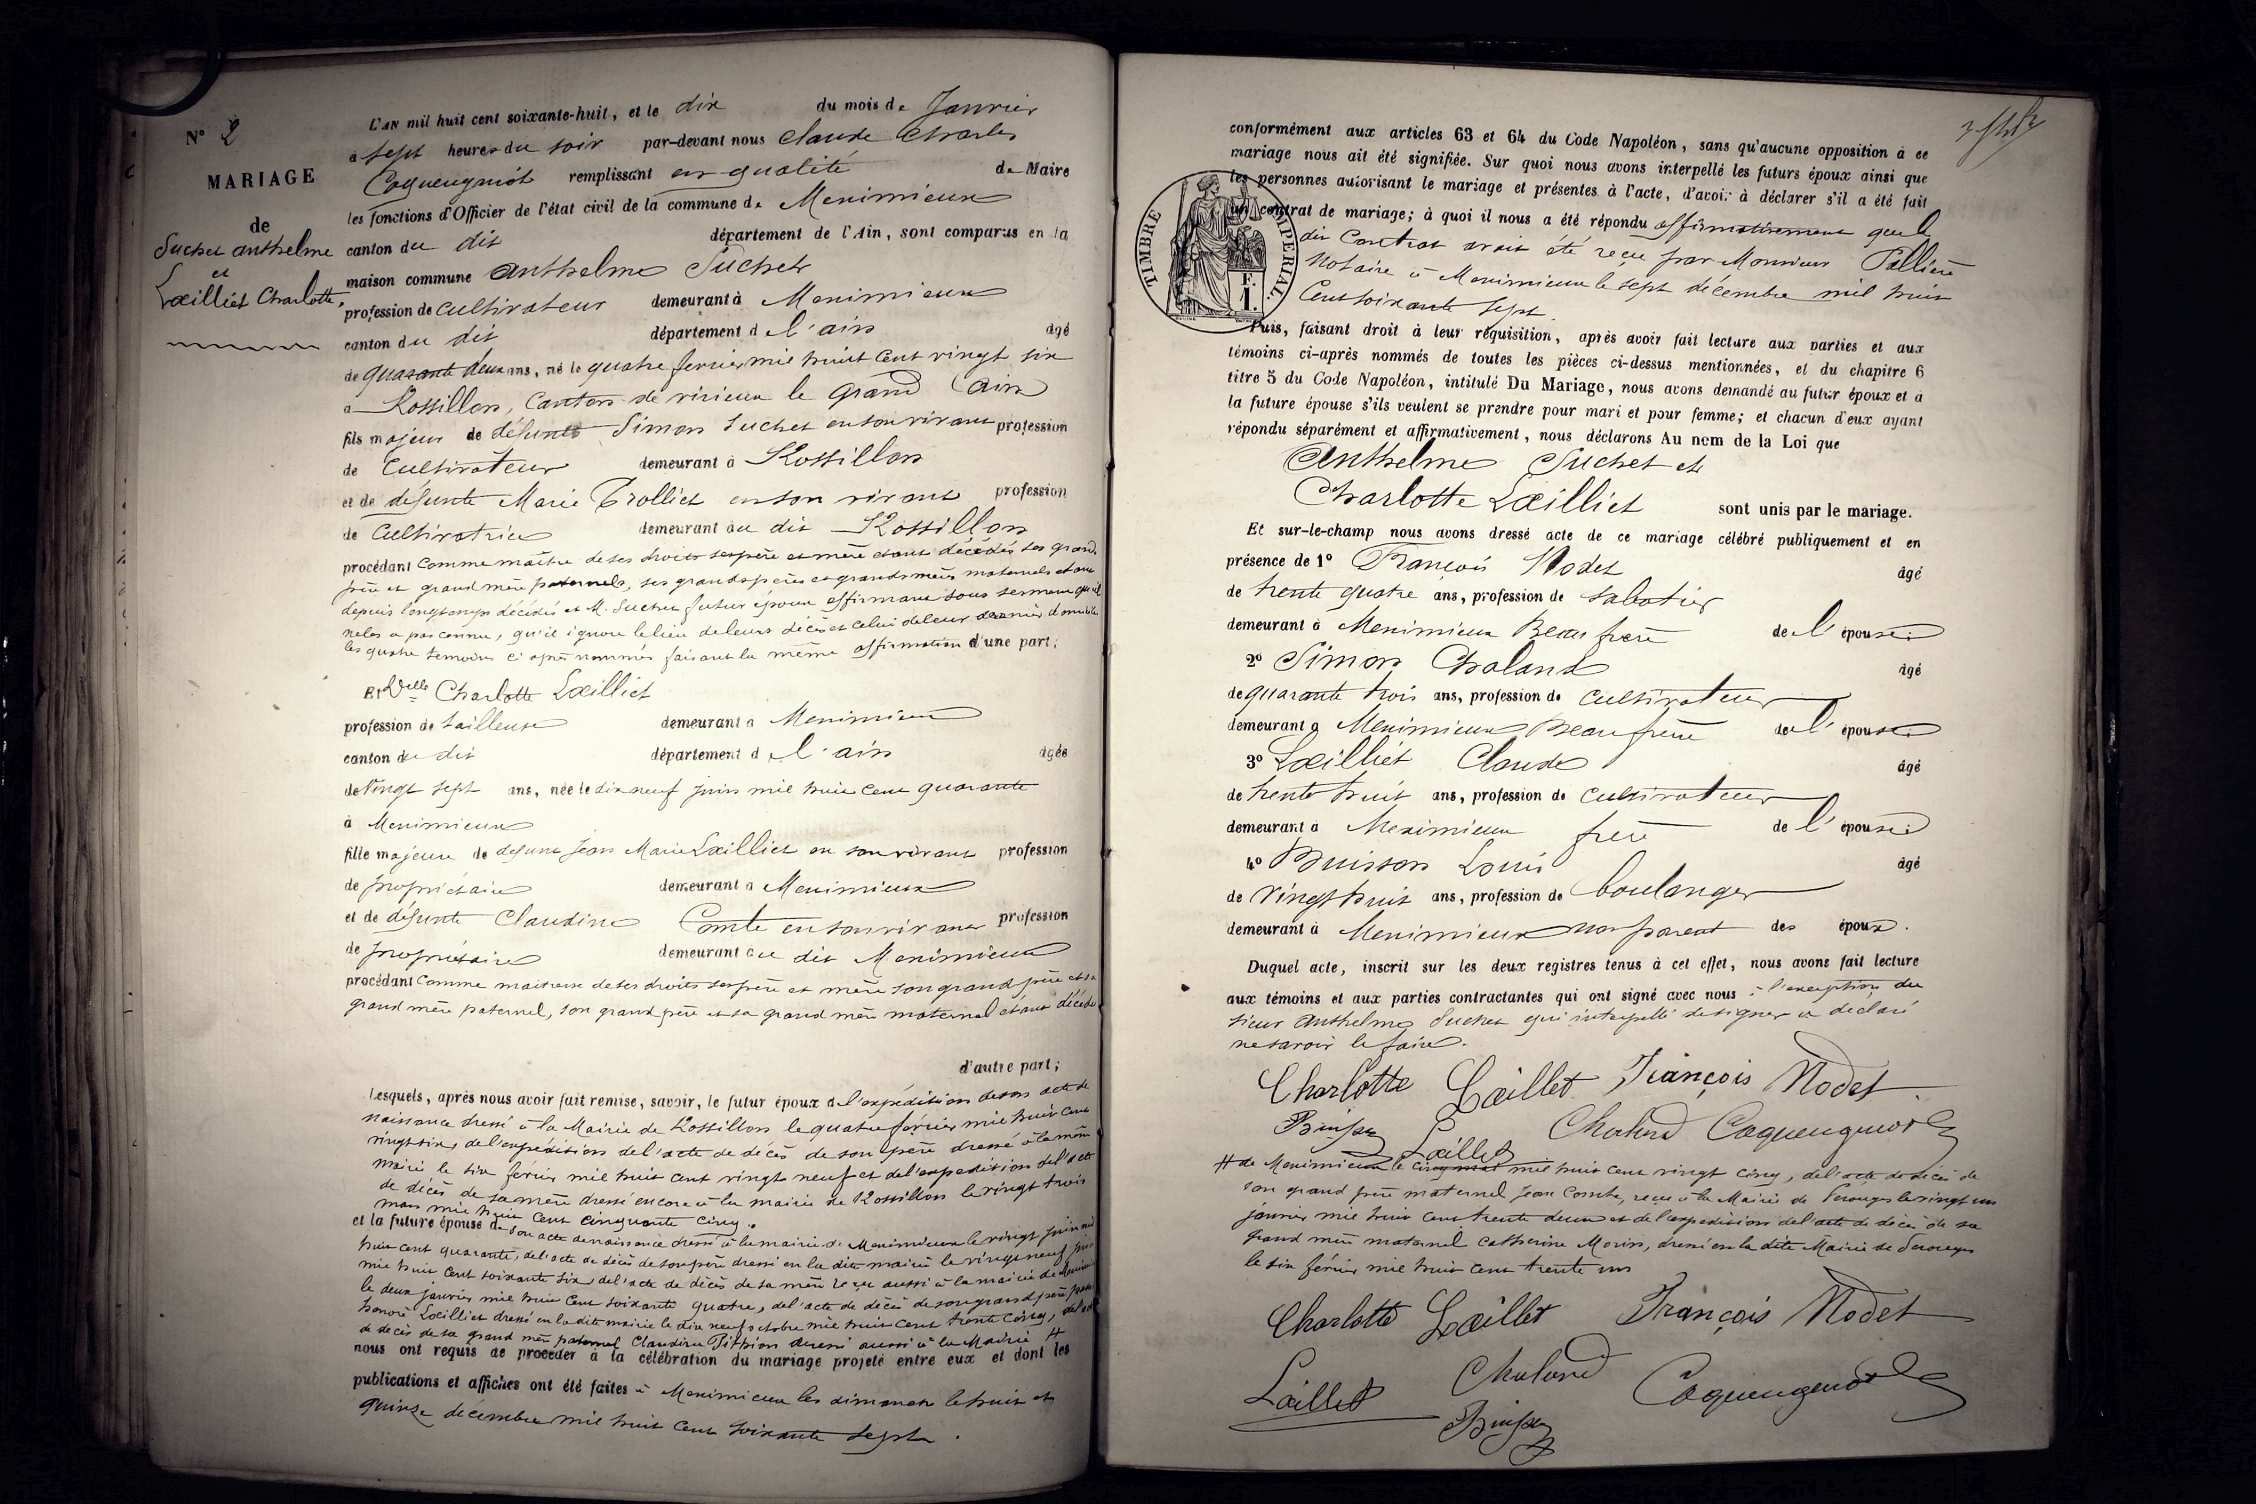 N° 2
MARIAGE
de
Suchet anthelme
et
Lœilliet Charlotte.
L'AN mil huit cent soixante-huit, et le dix du mois de Janvier
à sept heures du soir par-devant nous Claude Charles
Coqueugniot remplissant en qualité de Maire
les fonctions d'Officier de l'état civil de la commune de Meximieux
canton du dit département de l'Ain, sont comparus en la
maison commune Anthelme Suchet
profession de cultivateur demeurant à Meximieux
canton du dit département d l'ain âgé
de quarante deux ans, né le quatre février mil huit cent vingt six
a Rossillon, Canton de virieux le grand (Ain)
fils majeur de défunt Simon Suchet en son vivant profession
de Cultivateur demeurant à Rossillon
et de défunte Marie Trolliet en son vivant profession
de Cultivatrice demeurant au dit Rossillon
procédant Comme maître de ses droits ses père et mère étant décédés ses grand
père et grand mère paternels, ses grands pères et grands mères maternels étant
depuis longtemps décédés et M. Suchet futur époux affirmant sous serment qu'il
ne les a pas connu, qu'il ignore le lieu de leurs décès et celui de leur dernier domicile
les quatre temoins ci après nommés faisant la même affirmation d'une part;
Et Delle Charlotte Lœilliet
profession de tailleuse demeurant à Meximieux
canton du dit département d l'ain âgée
de vingt sept ans, née le dix neuf juin mil huit cent quarante
à Meximieux
fille majeure de defunt Jean Marie Lœilliet en son vivant profession
de propriétaire demeurant à Meximieux
et de défunte Claudine Comte en son vivant profession
de propriétaire demeurant au dit Meximieux
procédant Comme maitresse de ses droits ses père et mère son grand père et sa
grand mère paternel, son grand père et sa grand mère maternel étant décédés
d'autre part;
Lesquels, après nous avoir fait remise, savoir, le futur époux d l'expédition de son acte de
naissance dressé à la Mairie de Rossillon le quatre février mil huit cent
vingt six, de l'expédition de l'acte de décès de son père dressé à la même
mairie le six février mil huit cent vingt neuf et de l'expedition de l'acte
de décès de sa mère dressé encore à la mairie de Rossillon le vingt trois
mars mil huit cent cinquante cinq.
et la future épouse de son acte de naissance dressé à la mairie de Meximieux le vingt juin mil
huit cent quarante, de l'acte de décès de son père dressé en la dite mairie le vingt neuf juin
mil huit cent soixante six, de l'acte de décès de sa mère reçu aussi à la mairie de Meximieux
le deux janvier mil huit cent soixante quatre, de l'acte de décès de son grand père
honoré Lœilliet dressé en la dite mairie le dix neuf octobre mil huit cent trente cinq, de l'acte
de décès de sa grand mère paternel Claudine Pithion dressé aussi à la Mairie #
nous ont requis de procéder à la célébration du mariage projeté entre eux et dont les
publications et affiches ont été faites à Meximieux les dimanche le huit et
quinze décembre mil huit cent soixante sept.
conformément aux articles 63 et 64 du Code Napoléon, sans qu'aucune opposition à ce
mariage nous ait été signifiée. Sur quoi nous avons interpellé les futurs époux ainsi que
les personnes autorisant le mariage et présentes à l'acte, d'avoir à déclarer s'il a été fait
un contrat de mariage; à quoi il nous a été répondu affirmativement que le
dit Contrat avait été reçu par Monsieur Pallière
Notaire à Meximieux le sept décembre mil huit
Cent soixante sept.
TIMBRE IMPERIAL.
F.
1.
Puis, faisant droit à leur réquisition, après avoir fait lecture aux parties et aux
témoins ci-après nommés de toutes les pièces ci-dessus mentionnées, et du chapitre 6
titre 5 du Code Napoléon, intitulé Du Mariage, nous avons demandé au futur époux et à
la future épouse s'ils veulent se prendre pour mari et pour femme; et chacun d'eux ayant
répondu séparément et affirmativement, nous déclarons Au nom de la Loi que
Anthelme Suchet et
Charlotte Lœilliet sont unis par le mariage.
Et sur-le-champ nous avons dressé acte de ce mariage célébré publiquement et en
présence de 1° François Nodet âgé
de trente quatre ans, profession de sabotier
demeurant à Meximieux Beau frère de l'épouse
2° Simon Chaland âgé
de quarante trois ans, profession de cultivateur
demeurant à Meximieux Beau frère de l'épouse
3° Lœilliet Claude âgé
de trente huit ans, profession de cultivateur
demeurant à Meximieux frère de l'épouse
4° Buisson Louis âgé
de vingt huit ans, profession de boulanger
demeurant à Meximieux non parent des époux.
Duquel acte, inscrit sur les deux registres tenus à cet effet, nous avons fait lecture
aux témoins et aux parties contractantes qui ont signé avec nous à l'exception du
sieur Anthelme Suchet qui interpellé de signer a déclaré
ne savoir le faire.
Charlotte Lœillet François Nodet
Buisson Lœillet Chaland Coqueugniot
# de Meximieux le cinq mai mil huit cent vingt cinq, de l'acte de décès de
son grand père maternel Jean Comte, reçu à la Mairie de Perouges le vingt un
janvier mil huit cent trente deux et de l'expedition de l'acte de décès de sa
grand mère maternel Catherine Morin, dressé en la dite Mairie de Perouges
le six février mil huit cent trente un
Charlotte Lœillet François Nodet
Lœillet Chaland Coqueugniot
Buisson